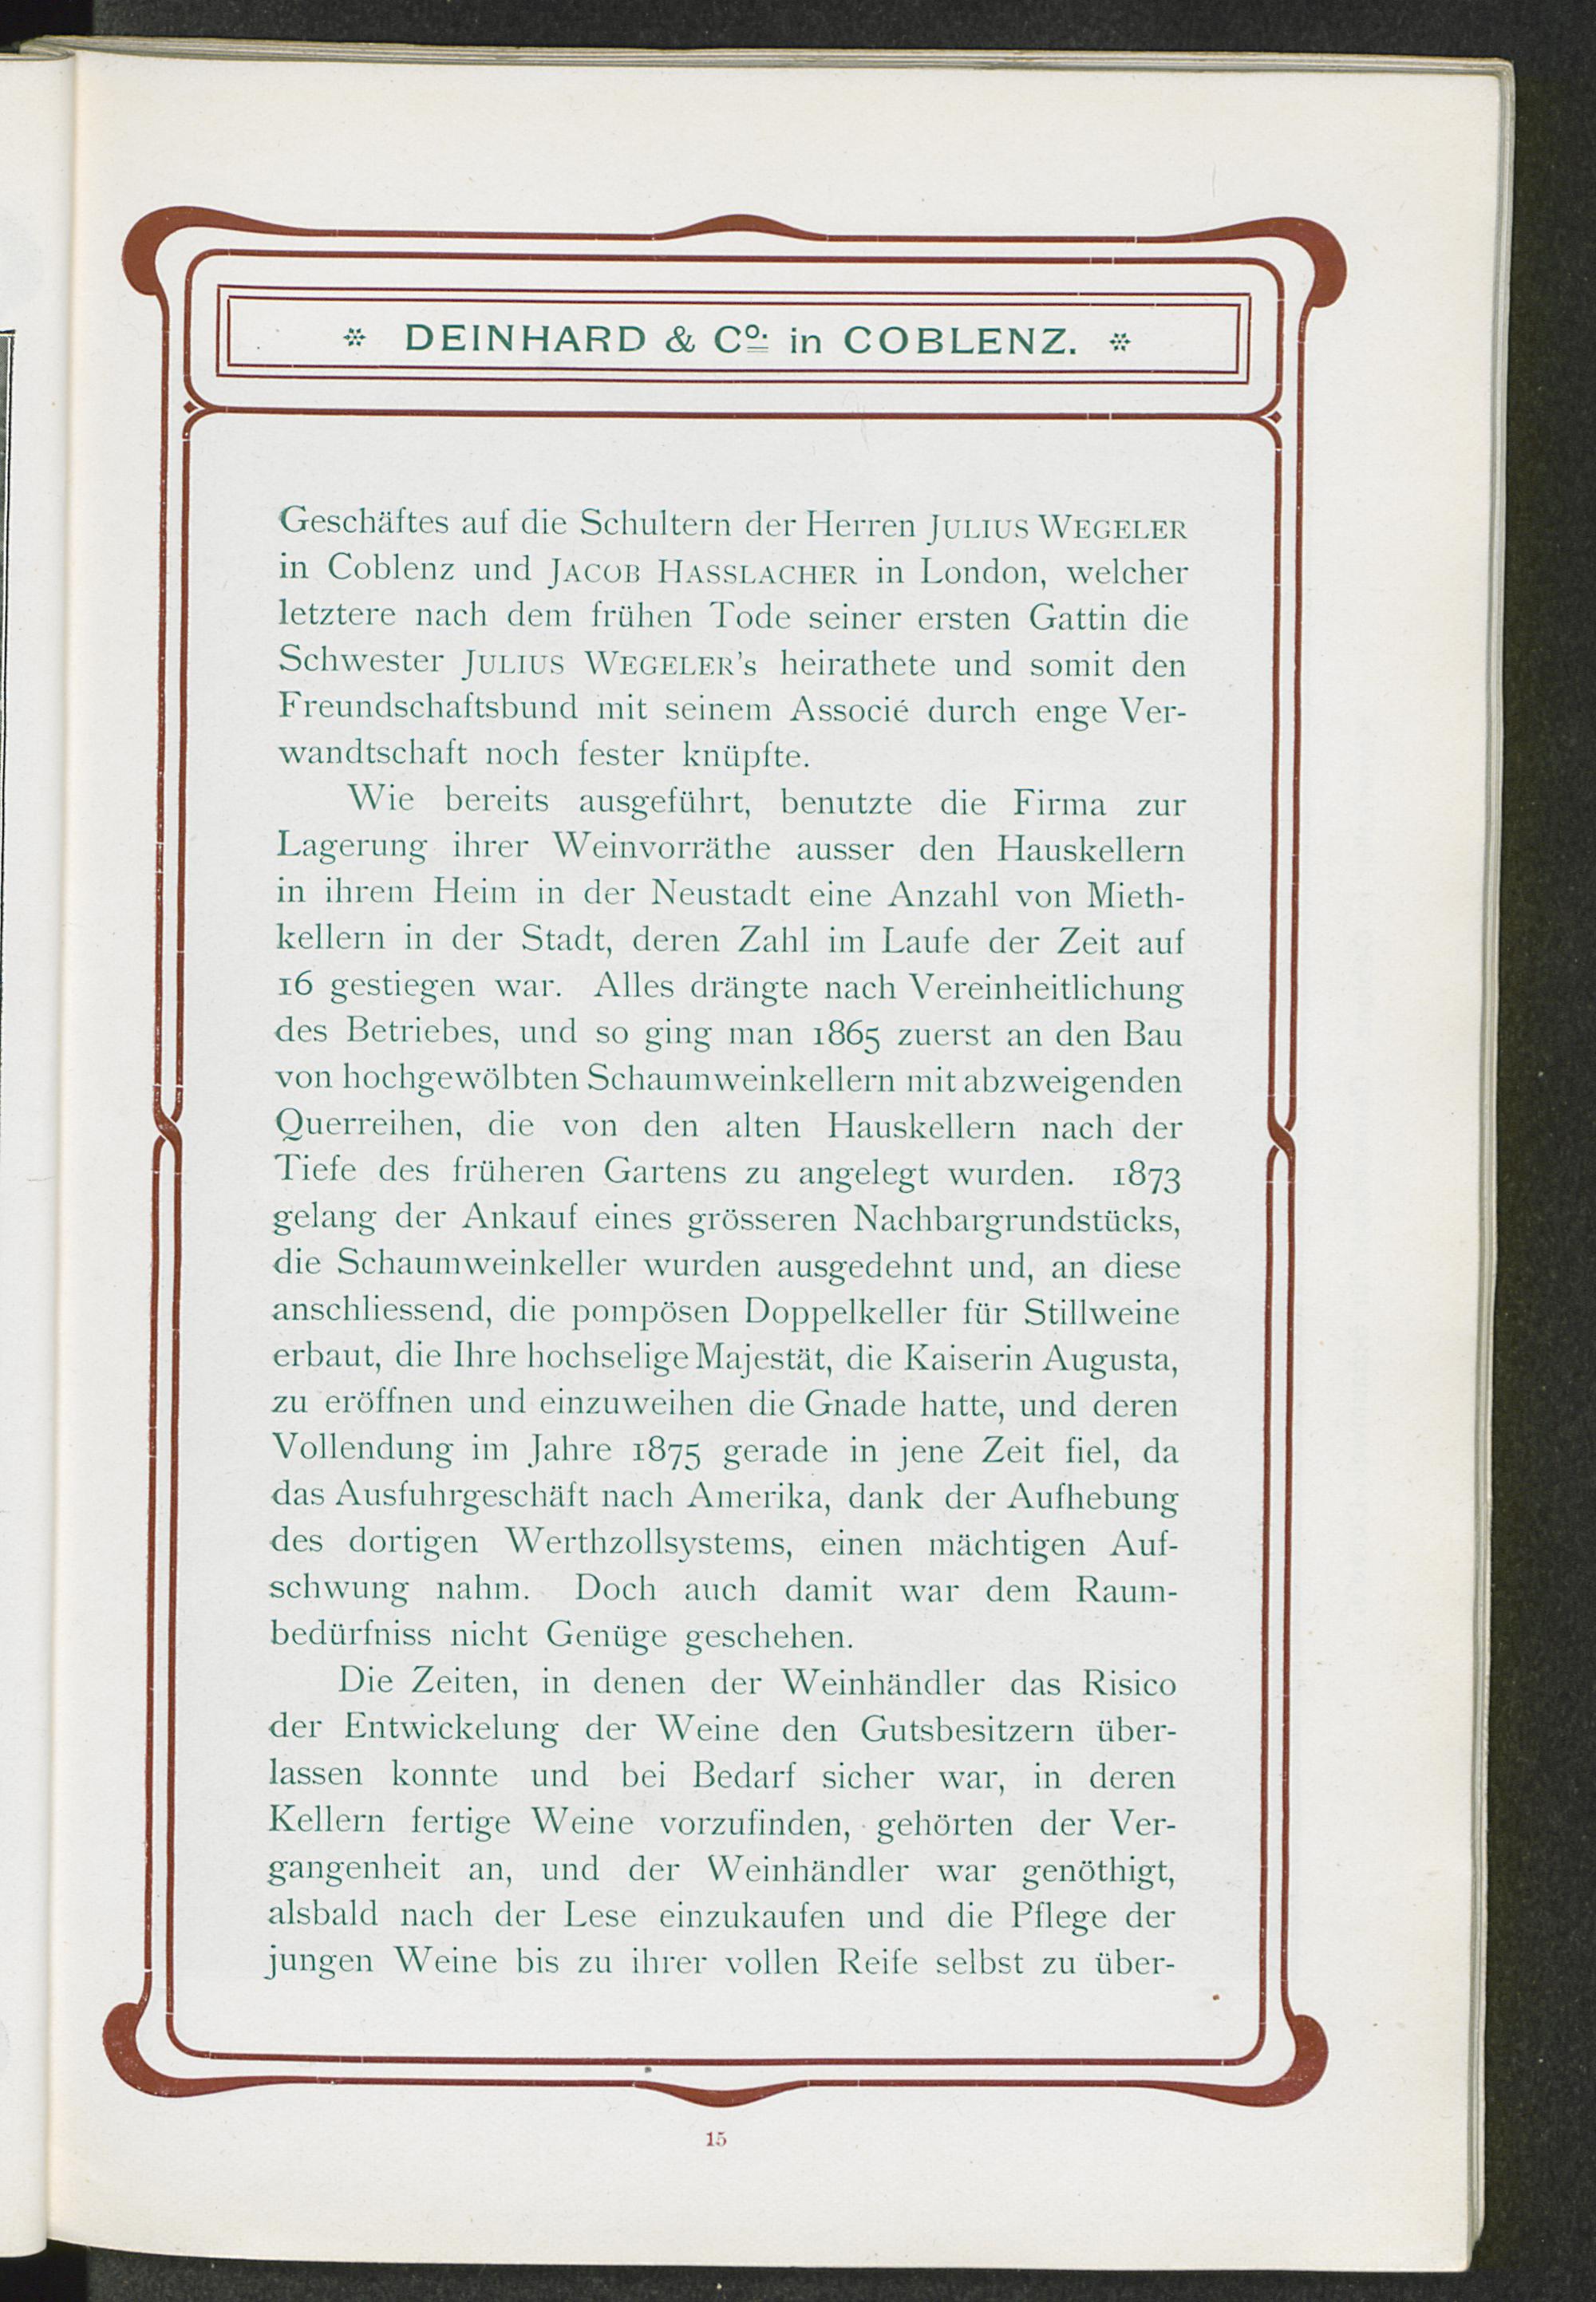 * DEINHARD & Co. in COBLENZ. *
Geschäftes auf die Schultern der Herren JULIUS WEGELER
in Coblenz und JACOB HASSLACHER in London, welcher
letztere nach dem frühen Tode seiner ersten Gattin die
Schwester JULIUS WEGELER's heirathete und somit den
Freundschaftsbund mit seinem Associé durch enge Ver-
wandtschaft noch fester knüpfte.
Wie bereits ausgeführt, benutzte die Firma zur
Lagerung ihrer Weinvorräthe ausser den Hauskellern
in ihrem Heim in der Neustadt eine Anzahl von Mieth-
kellern in der Stadt, deren Zahl im Laufe der Zeit auf
16 gestiegen war. Alles drängte nach Vereinheitlichung
des Betriebes, und so ging man 1865 zuerst an den Bau
von hochgewölbten Schaumweinkellern mit abzweigenden
Querreihen, die von den alten Hauskellern nach der
Tiefe des früheren Gartens zu angelegt wurden. 1873
gelang der Ankauf eines grösseren Nachbargrundstücks,
die Schaumweinkeller wurden ausgedehnt und, an diese
anschliessend, die pompösen Doppelkeller für Stillweine
erbaut, die Ihre hochselige Majestät, die Kaiserin Augusta,
zu eröffnen und einzuweihen die Gnade hatte, und deren
Vollendung im Jahre 1875 gerade in jene Zeit fiel, da
das Ausfuhrgeschäft nach Amerika, dank der Aufhebung
des dortigen Werthzollsystems, einen mächtigen Auf-
schwung nahm. Doch auch damit war dem Raum-
bedürfniss nicht Genüge geschehen.
Die Zeiten, in denen der Weinhändler das Risico
der Entwickelung der Weine den Gutsbesitzern über-
lassen konnte und bei Bedarf sicher war, in deren
Kellern fertige Weine vorzufinden, gehörten der Ver-
gangenheit an, und der Weinhändler war genöthigt,
alsbald nach der Lese einzukaufen und die Pflege der
jungen Weine bis zu ihrer vollen Reife selbst zu über-
15